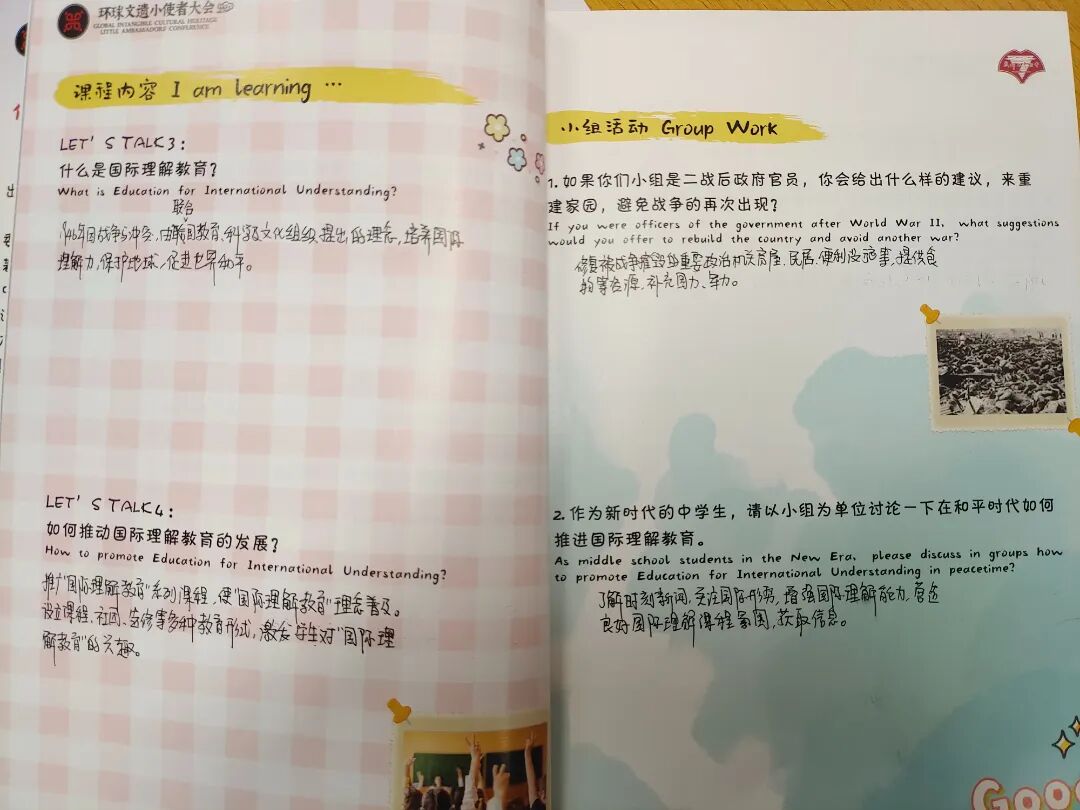 环球文遗小使者大会
GLOBAL INTANGIBLE CULTURAL HERITAGE
LITTLE AMBASSADORS CONFERENCE
课程内容 I am learning ...
LET'S TALK3:
什么是国际理解教育?
What is Education for International Understanding?
联合
1946年因战争与冲突,由联国教育、科学及文化组织提出的理念,培养国际
理解力,保护地球,促进世界和平。
LET'S TALK4:
如何推动国际理解教育的发展?
How to promote Education for International Understanding?
推广"国际理解教育"系列课程,使"国际理解教育"理念普及。
设立课程、社团、等多种教育形式,激发学生对"国际理
解教育"的兴趣。
小组活动 Group Work
1. 如果你们小组是二战后政府官员,你会给出什么样的建议,来重
建家园,避免战争的再次出现?
If you were officers of the government after World War II, what suggestions
would you offer to rebuild the country and avoid another war?
修复被战争摧毁的重要政治机关房屋、民居、便利设施等,提供食
物等资源,补充国力、军力。
2. 作为新时代的中学生,请以小组为单位讨论一下在和平时代如何
推进国际理解教育。
As middle school students in the New Era, please discuss in groups how
to promote Education for International Understanding in peacetime?
了解时刻新闻,关注国际形势,增强国际理解能力,营造
良好国际理解课程氛围,获取信息。
Good